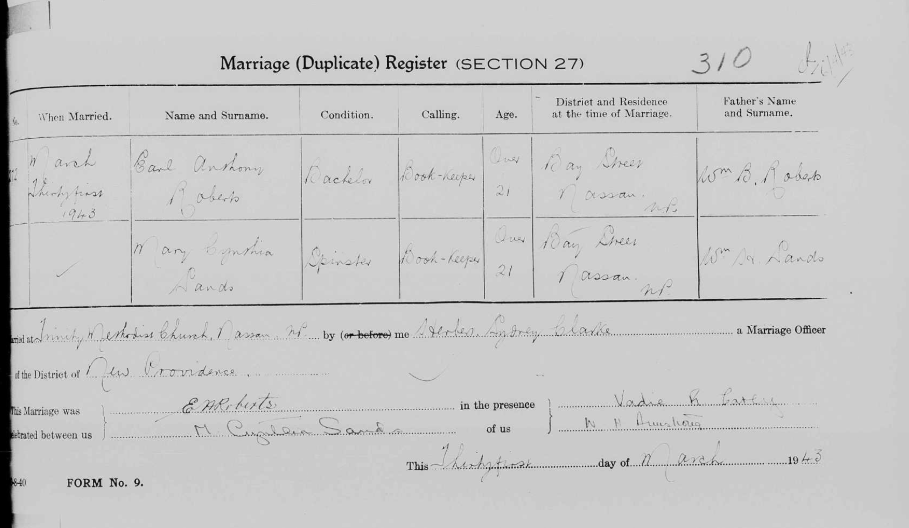 Marriage (Duplicate) Register (SECTION 27) 310
When Married. Name and Surname. Condition. Calling. Age. District and Residence at the time of Marriage. Father's Name and Surname.
March Thirtyfirst 1943 Earl Anthony Roberts Bachelor Book-Keeper Over 21 Bay Street Nassau. NP. Wm B. Roberts
Mary Cynthia Sands Spinster Book-Keeper Over 21 Bay Street Nassau. NP Wm Sands
at Trinity Methodist Church, Nassau, NP. by (or before) me Herbert Sydney Clarke a Marriage Officer
of the District of New Providence.
This Marriage was E Roberts in the presence
between us M Cynthia Sands of us W H Armstrong
This Thirtyfirst day of March 1943
FORM No. 9.